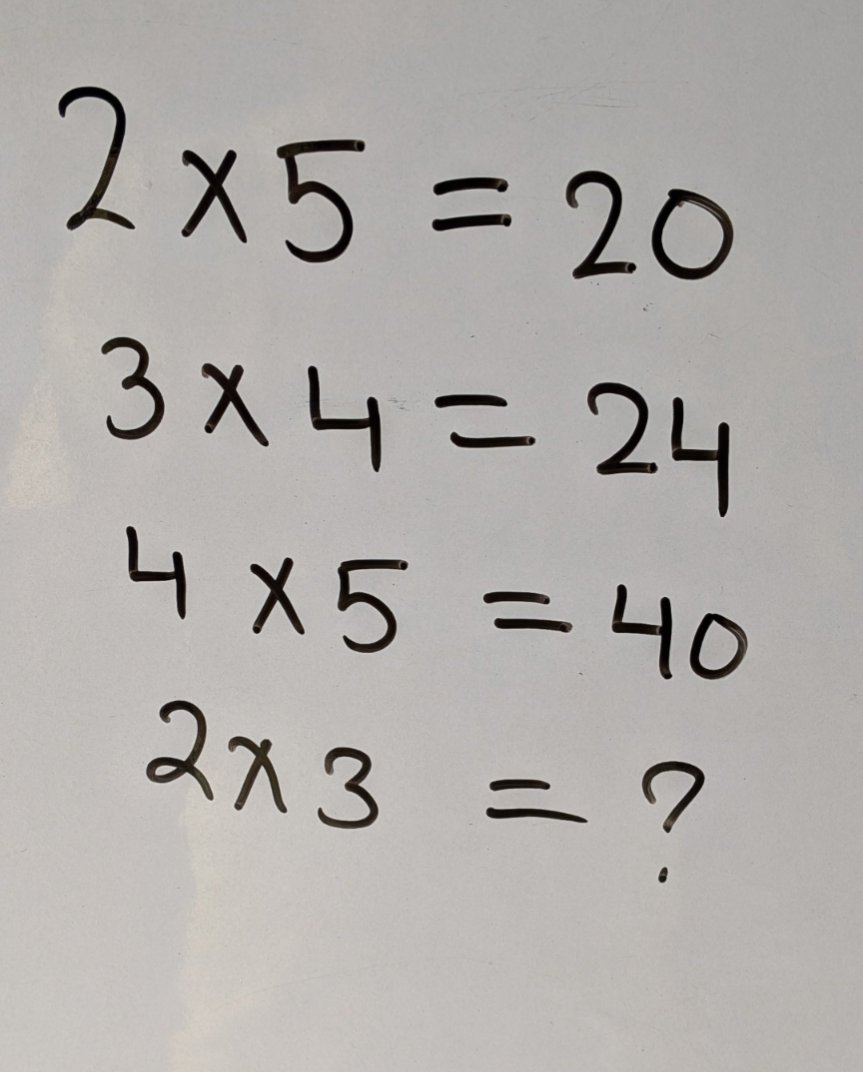 2 × 5 = 20
3 × 4 = 24
4 × 5 = 40
2 × 3 = ?